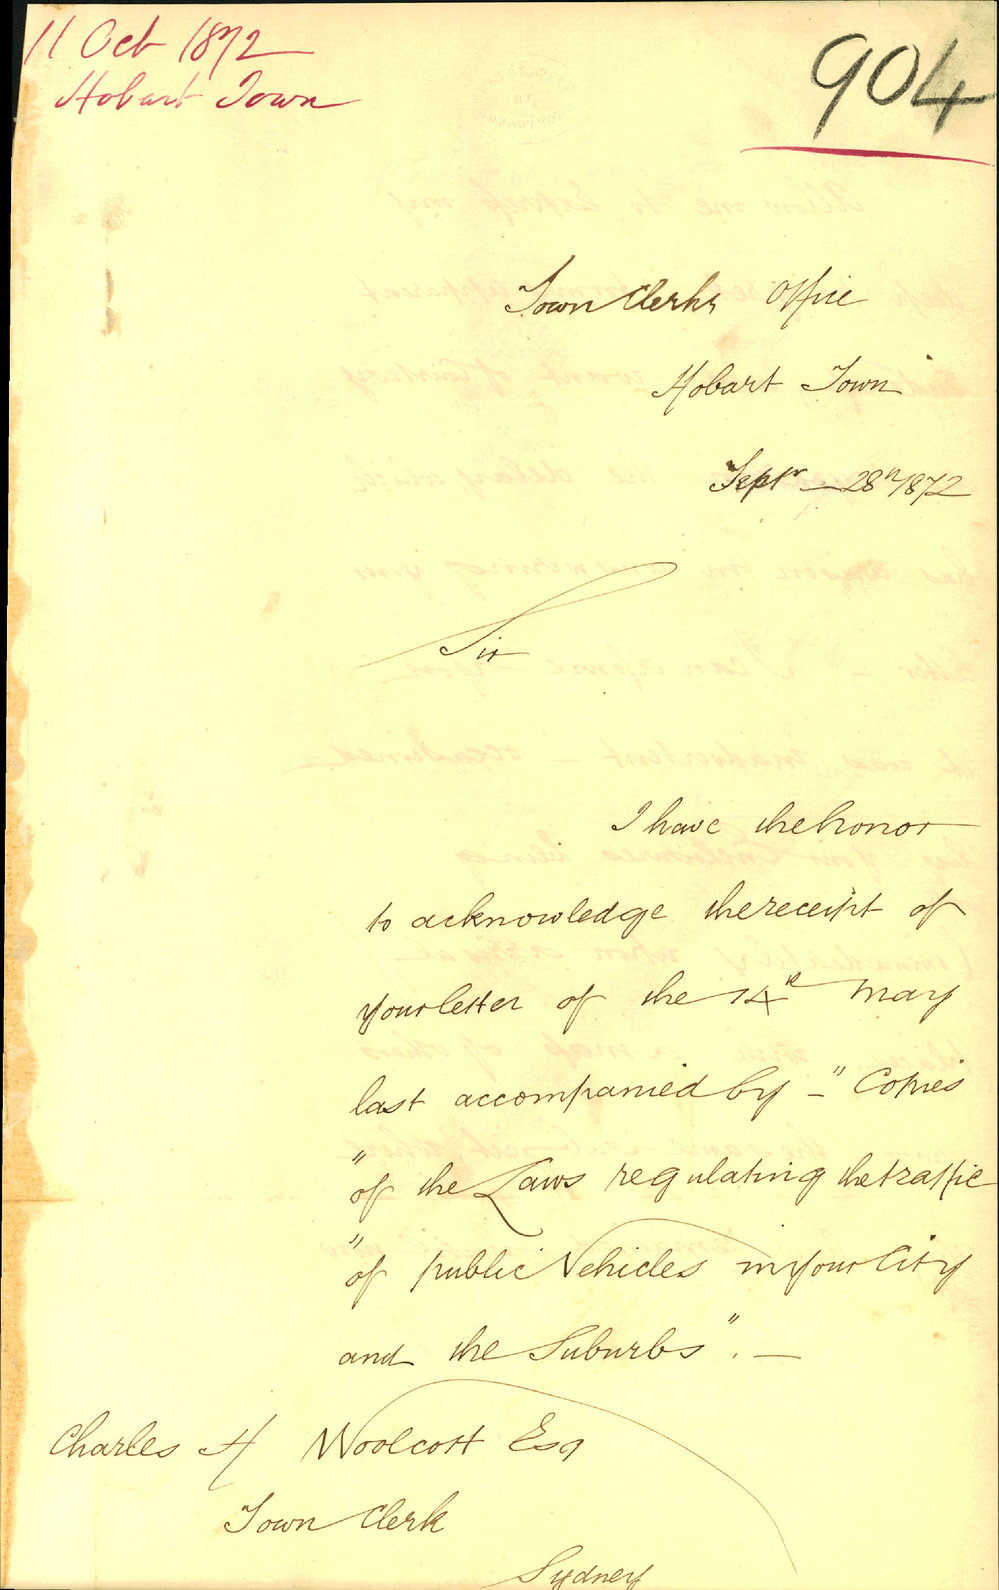 11 Oct 1872
Hobart Town
904
Town Clerks Office
Hobart Town
Septr 28th 1872
Sir
I have the honor
to acknowledge the receipt of
your letter of the 14th May
last accompanied by – " Copies
" of the Laws regulating the traffic
" of public Vehicles in your City
and the Suburbs". –
Charles H Woolcott Esq
Town Clerk
Sydney